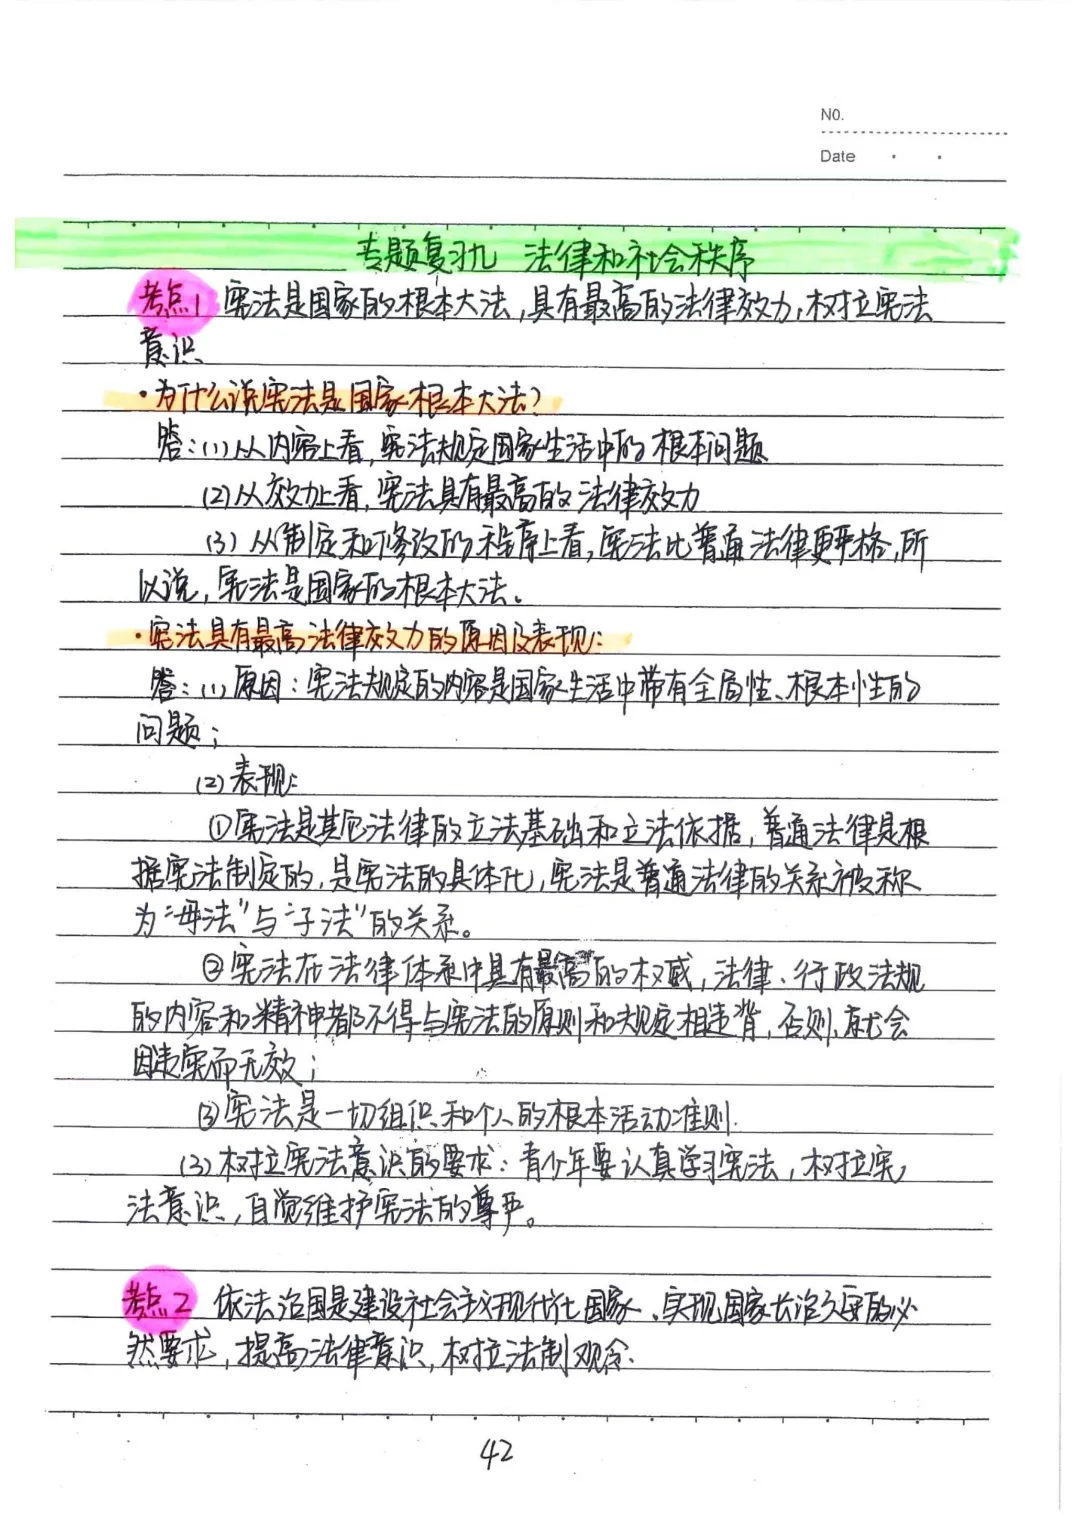 NO.
Date
专题复习九 法律和社会秩序
考点1 宪法是国家的根本大法,具有最高的法律效力,树立宪法
意识
·为什么说宪法是国家根本大法?
答:(1)从内容上看,宪法规定国家生活中的根本问题
(2)从效力上看,宪法具有最高的法律效力
(3)从制定和修改的程序上看,宪法比普通法律更严格,所
以说,宪法是国家的根本大法。
·宪法具有最高法律效力的原因及表现:
答:(1)原因:宪法规定的内容是国家生活中带有全局性、根本性的
问题;
(2)表现:
①宪法是其它法律的立法基础和立法依据,普通法律是根
据宪法制定的,是宪法的具体化,宪法是普通法律的关系被称
为“母法”与“子法”的关系。
②宪法在法律体系中具有最高的权威,法律、行政法规
的内容和精神都不得与宪法的原则和规定相违背,否则,就会
因违宪而无效;
③宪法是一切组织和个人的根本活动准则.
(3)树立宪法意识的要求:青少年要认真学习宪法,树立宪
法意识,自觉维护宪法的尊严。
考点2 依法治国是建设社会主义现代化国家、实现国家长治久安的必
然要求,提高法律意识,树立法制观念.
42